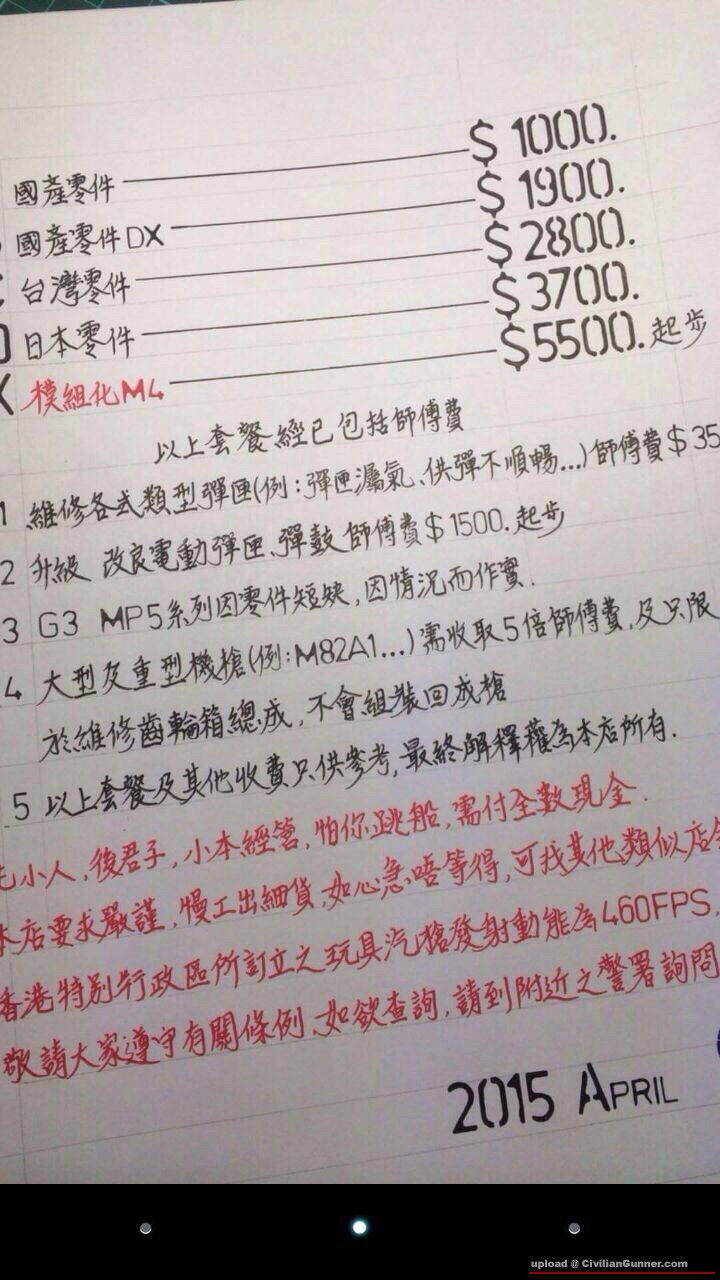 國產零件 $1000.
國產零件DX $1900.
台灣零件 $2800.
日本零件 $3700.
X 模組化M4 $5500.起步
以上套餐經已包括師傅費
1 維修各式類型彈匣(例:彈匣漏氣、供彈不順暢...)師傅費$35
2 升級 改良電動彈匣、彈鼓 師傅費$1500.起步
3 G3 MP5系列因零件短缺,因情況而作實.
4 大型及重型機槍(例:M82A1...)需收取5倍師傅費,及只限
於維修齒輪箱總成,不會組裝回成槍
5 以上套餐及其他收費只供參考,最終解釋權為本店所有.
先小人,後君子,小本經營,怕你跳船,需付全數現金.
本店要求嚴謹,慢工出細貨,如心急唔等得,可找其他類似店
香港特別行政區所訂立之玩具汽槍發射動能為460FPS,
敬請大家遵守有關條例、如欲查詢,請到附近之警署詢問
2015 APRIL
upload @ CivilianGunner.com